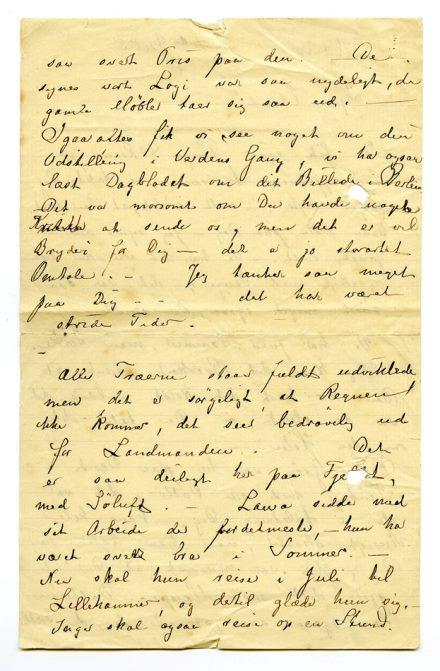 saa svært Pris paa den. — De
synes vort Logi var saa nydeligt, de
gamle Møbler taer sig saa ud. —
Igaaraftes fik vi see noget om den
Udstilling i Verdens Gang, vi ha ogsaa
læst Dagbladet om dit Billede i Berlin
Det var morsomt om Du havde nogle
Kritikk at sende os, men det er vel
Bryderi for Dig — det er jo svært
. — Jeg tænker saa meget
paa Dig — - det har været
stride Tider. —
Alle Træerne staar fuldt udviklede
men det er sørgeligt, at Regnen
ikke kommer, det seer bedrøvelig ud
for Landmanden. Det
er saa deiligt her paa Fjeldet,
med Søluft. — Laura sidder med
sit Arbeide det fordetmeste, — hun ha
været svært bra i Sommer. —
Nu skal hun reise i Juli til
Lillehammer, og dertil glæder hun sig.
Inger skal ogsaa reise op en Stund.